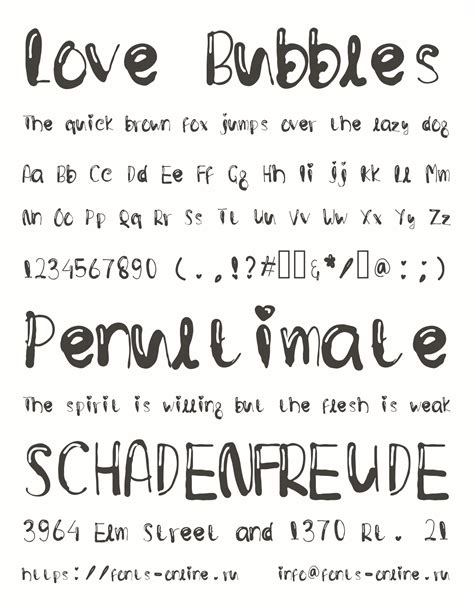 Love Bubbles
The quick brown fox jumps over the lazy dog
Aa Bb Cc Dd Ee Ff Gg Hh Ii Jj Kk Ll Mm
Nn Oo Pp Qq Rr Ss Tt Uu Vv Ww Xx Yy Zz
1234567890 (.,!?#▯▯&*/▯@:;)
Penultimate
The spirit is willing but the flesh is weak
SCHADENFREUDE
3964 Elm Street and 1370 Rt. 21
https://fonts-online.ru info@fonts-online.ru